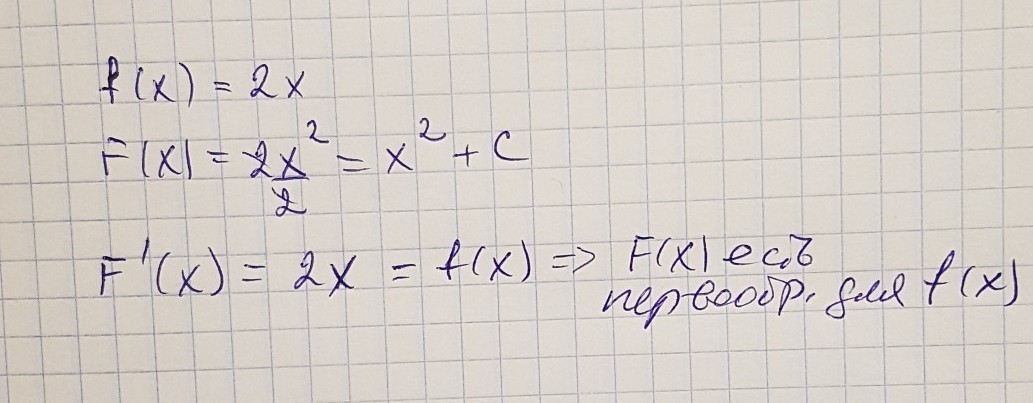 f(x) = 2x
F(x) = 2x²/2 = x² + C
F'(x) = 2x = f(x) => F(x) есть
первообр. для f(x)